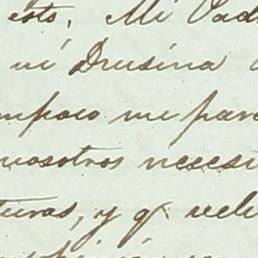 esto, Mi Vad
ni Drusina
mpoco me pare
nosotros necesi
turas, y q